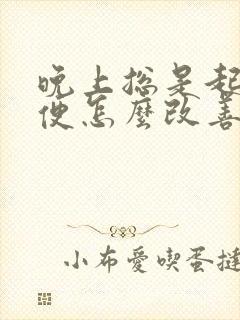 晚上總是起
便怎麼改善
小布愛喫蛋撻